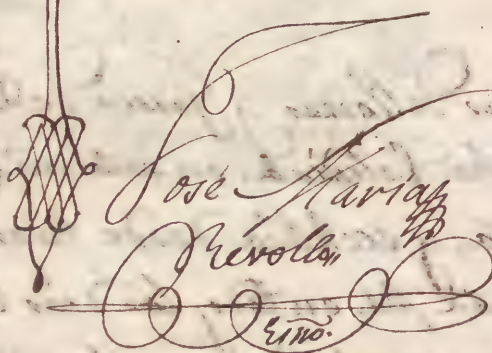 José María
Revollo
Esño.